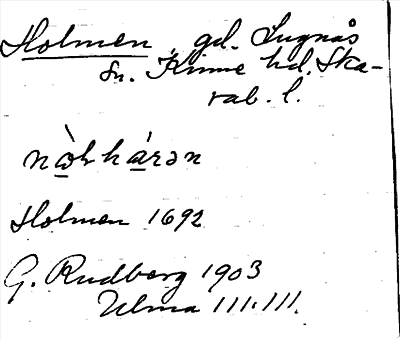 Holmen gd. Lugnås
sn. Kinne hd. Ska-
rab. l.
Holmen 1692
G. Rudberg 1903
Ulma 111.111.